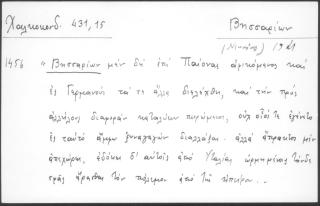 Χαλκοκονδ. 431,15
Βησσαρίων
1921
1456 "Βησσαρίων μὲν δὴ ἐπὶ Παίονας ἀφικόμενος καὶ
ἐς Γερμανοὺς τά τε ἄλλα διελέχθη, καὶ τὴν πρὸς
ἀλλήλους διαφορὰν καταλύων πειρώμενος, οὐχ οἷός τε ἐγένετο
ἐς ταὐτὸ ἄμφω ξυναγαγὼν διαλλάξαι. ἀλλὰ ἄπρακτος μὲν
ἀπεχώρει, ἐδόκει δ' αὐτοῖς ἀπὸ Ἰταλίας ὡρμημένοις
σφᾶς ἄρασθαι τὸν πόλεμον ἀπὸ τῆς ἠπείρου...